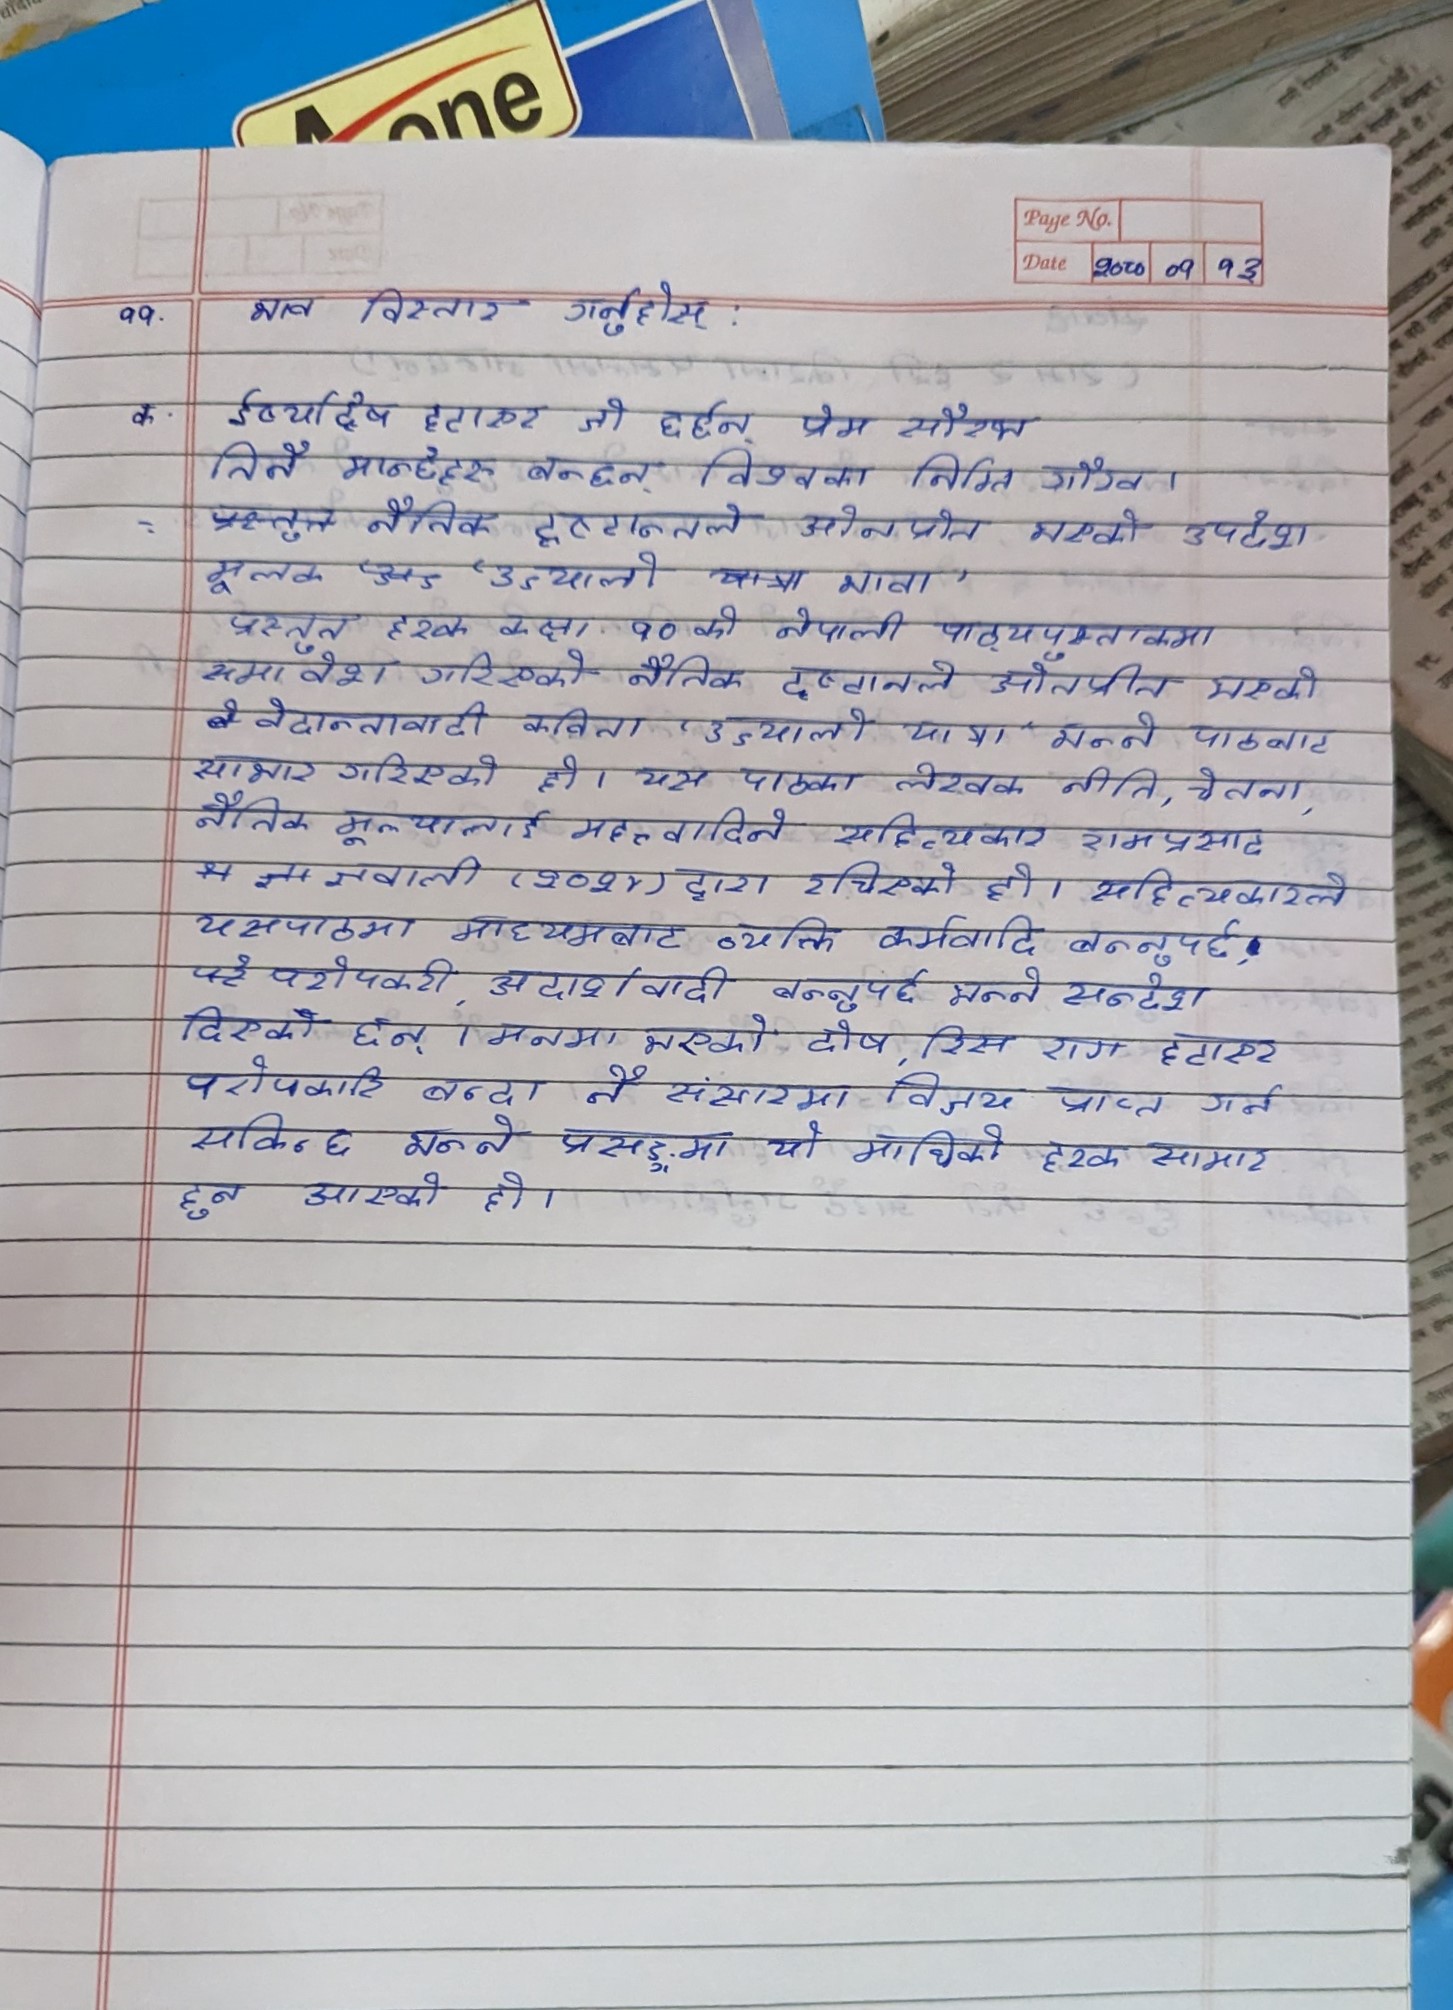 A one
Page No.
Date २०८० ०१ १३
११. भाव विस्तार गर्नुहोस् :
क. ईर्ष्याद्वेष हटाएर जो छर्छन् प्रेम सौरभ
तिनै मान्छेहरू बन्छन् विश्वका निम्ति गौरव ।
= प्रस्तुत नैतिक दृष्टान्तले ओतप्रोत भएको उपदेश
मूलक 'उज्यालो यात्रा
प्रस्तुत हरफ कक्षा १० को नेपाली पाठ्यपुस्ताकमा
समावेश गरिएको नैतिक दृष्टानले ओतप्रीत भएको
वेदान्तावादी कविता 'उज्यालो यात्रा' भन्ने पाठबाट
साभार गरिएको हो । यस पाठका लेखक नीति, चेतना,
नैतिक मूल्यालाई महत्वादिने सहित्यकार रामप्रसाद
ज्ञवाली (२०२४) द्वारा रचिएको हो । सहित्यकारले
यसपाठमा माध्यमबाट व्यक्ति कर्मवादि बन्नुपर्छ,
परोपकरी, अदार्शवादी बन्नुपर्छ भन्ने सन्देश
दिएको छन् । मनमा भएको दोष, रिस राग हटाएर
परोपकारि बन्दा नै संसारमा विजय प्राप्त गर्न
सकिन्छ भन्ने प्रसङ्गमा यो माथिको हरफ साभार
हुन आएको हो ।